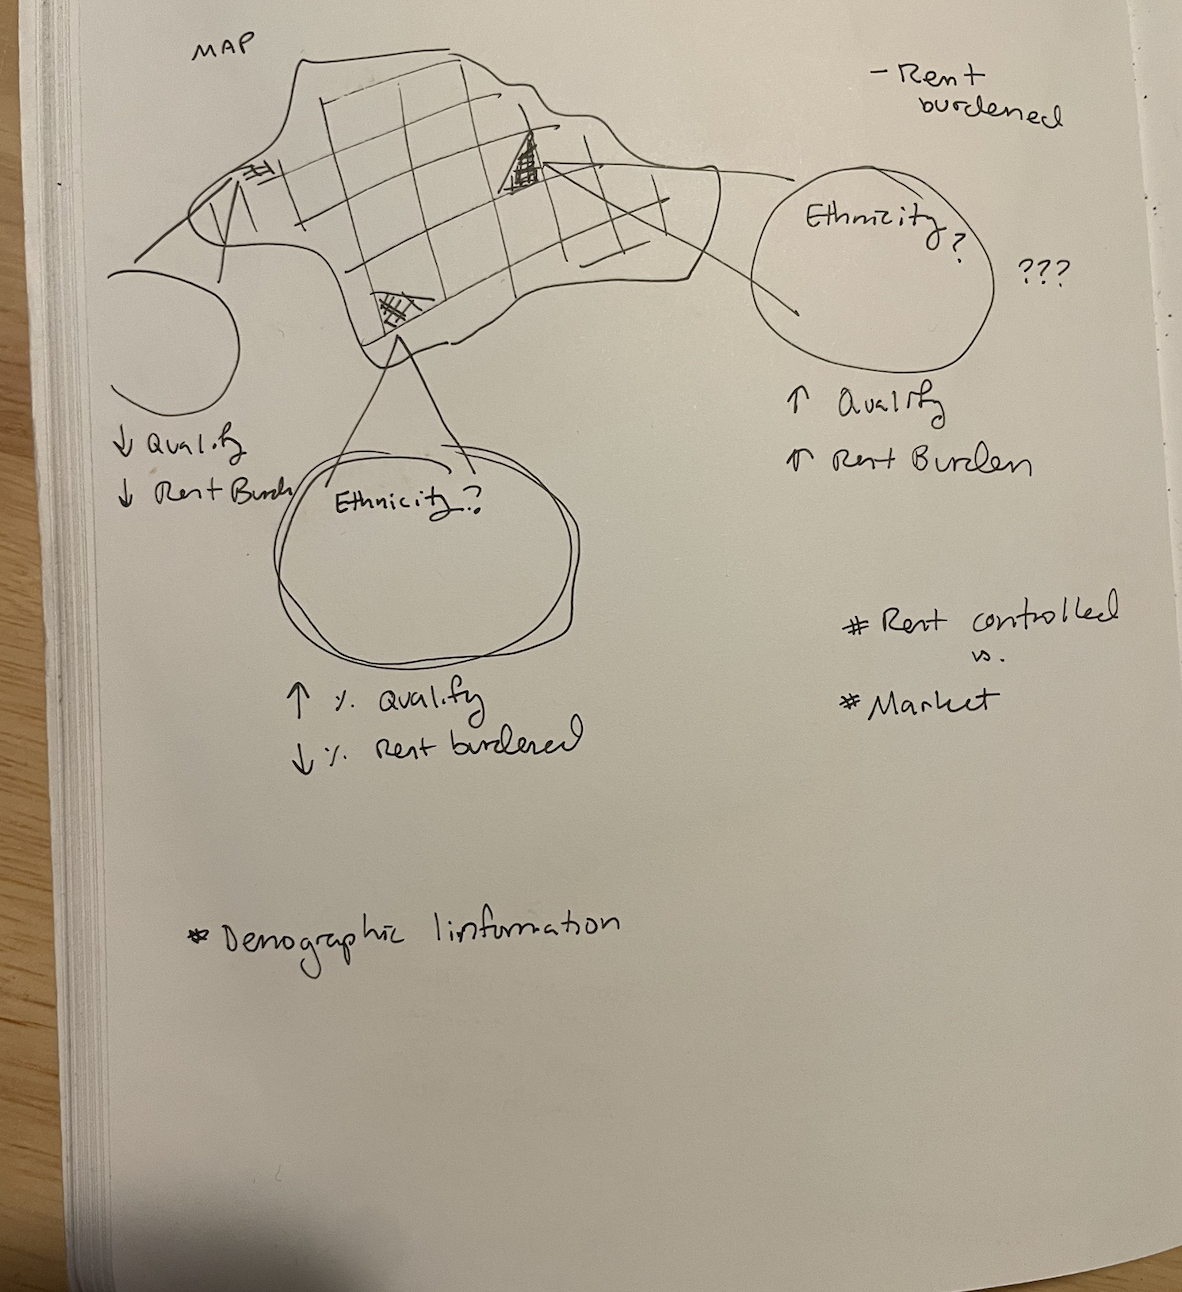 MAP
- Rent
burdened
Ethnicity?
???
↑ Qualify
↑ Rent Burden
↓ Qualify
↓ Rent Burden
Ethnicity?
↑ % Qualify
↓ % Rent burdened
# Rent controlled
vs.
# Market
* Demographic Iinformation